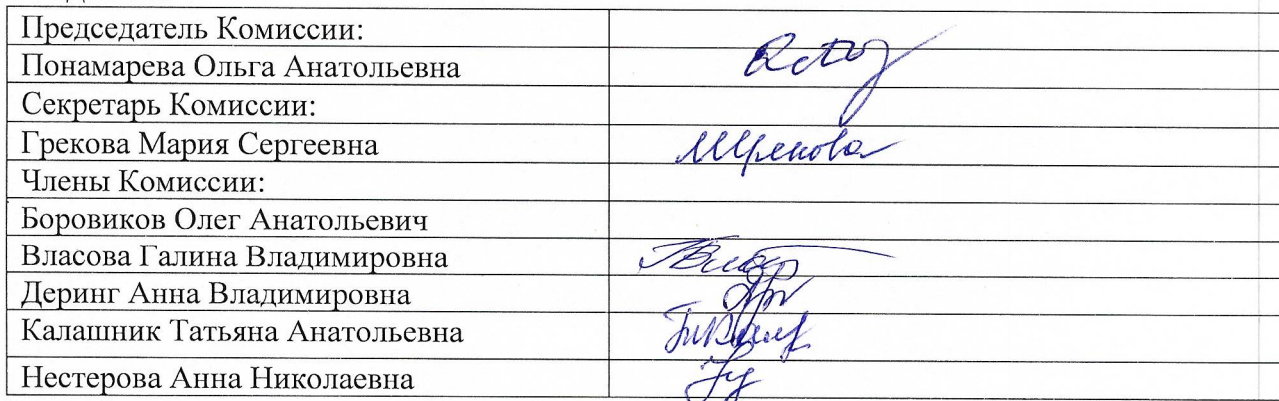 Председатель Комиссии:
Понамарева Ольга Анатольевна
Секретарь Комиссии:
Грекова Мария Сергеевна
Члены Комиссии:
Боровиков Олег Анатольевич
Власова Галина Владимировна
Деринг Анна Владимировна
Калашник Татьяна Анатольевна
Нестерова Анна Николаевна